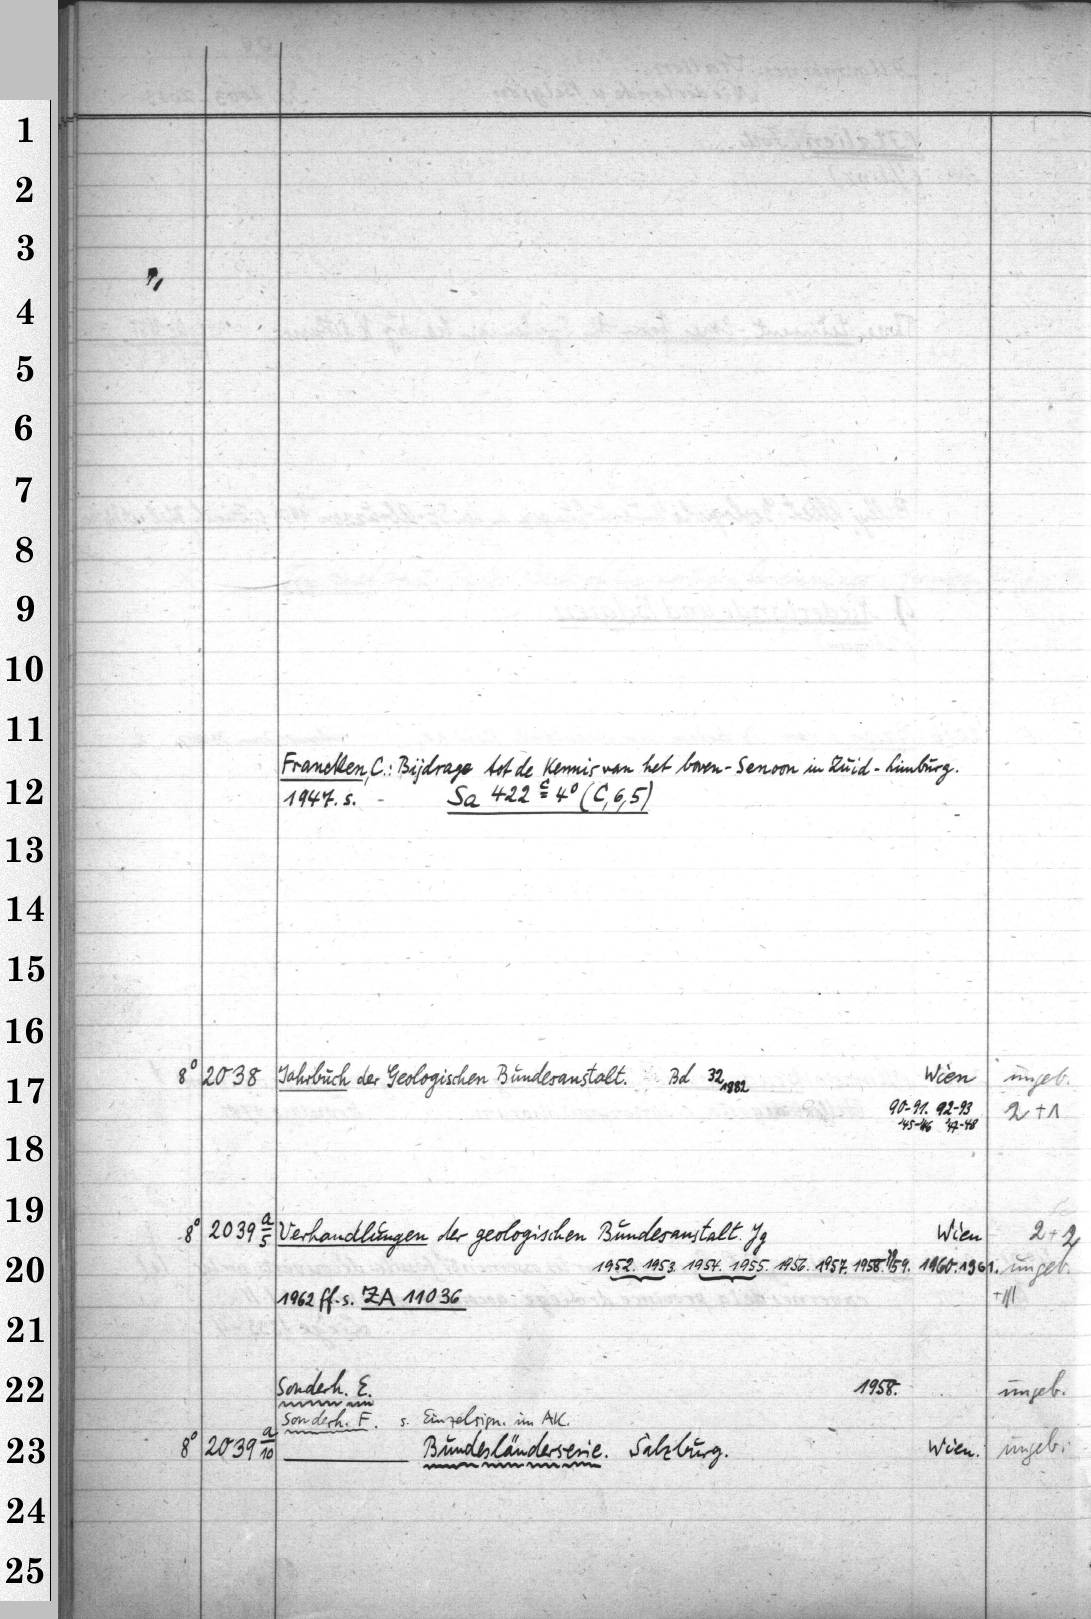 1
2
3
4
5
6
7
8
9
10
11
Francken, C.: Bijdrage tot de Kennis van het boven-Senoon in Zuid-Limburg.
12 1947. s. - Sa 422 c 4° (C, 6, 5)
13
14
15
16
17 8° 2038 Jahrbuch der Geologischen Bundesanstalt. Bd 32 1882 Wien ungeb.
90-91. 92-93 2 + 1
'45-'46 '47-'48
18
19
8° 2039 a/5 Verhandlungen der geologischen Bundesanstalt. Jg Wien 2+2
20 1952. 1953. 1954. 1955. 1956. 1957. 1958. 59. 1960. 1961. ungeb.
1962 ff. s. ZA 11036
21
22 Sonderh. E. 1958. ungeb.
Sonderh. F. s. Einzelsign. im AK.
23 8° 2039 a/10 Bundesländerserie. Salzburg. Wien. ungeb.
24
25